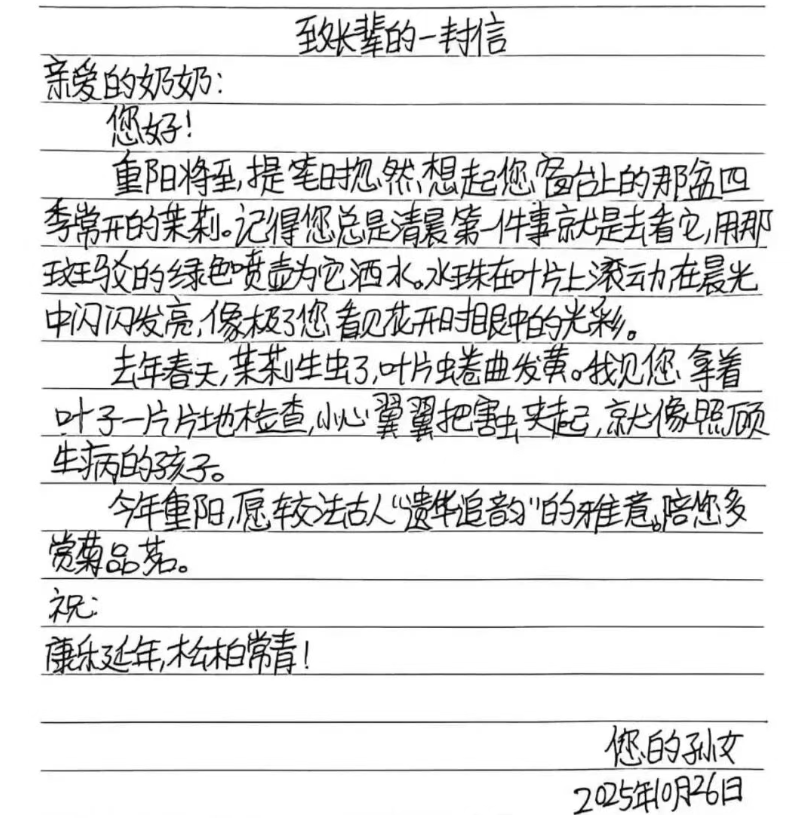 致长辈的一封信
亲爱的奶奶:
您好!
重阳将至,提笔时忽然想起您窗台上的那盆四
季常开的茉莉。记得您总是清晨第一件事就是去看它,用那
斑驳的绿色喷壶为它洒水。水珠在叶片上滚动,在晨光
中闪闪发亮,像极了您看见花开时眼中的光彩。
去年春天,茉莉生虫了,叶片蜷曲发黄。我见您拿着
叶子一片片地检查,小心翼翼把害虫夹起,就像照顾
生病的孩子。
今年重阳,愿较法古人“遗华追韵”的雅意。陪您多
赏菊品茗。
祝:
康乐延年,松柏常青!
您的孙女
2025年10月26日